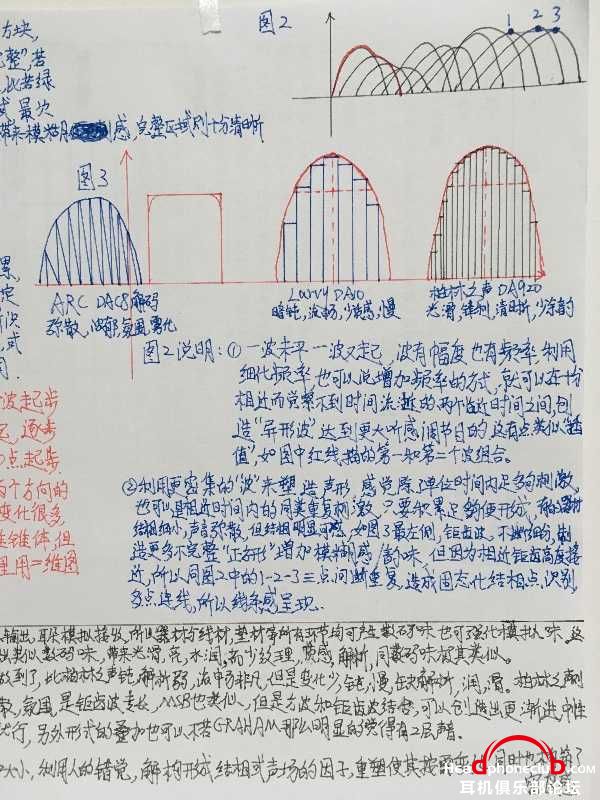 方块,
图2
1 2 3
完整",若
,比若绿
式 最次
带来模糊感,完整区域则十分清晰
图3
ARC DAC8解码
弥散,浓郁氛围雾化
Lavry DA10
暗钝,流畅,少质感,慢
柏林之声DA920
光滑,锋利,清晰,少余韵
累,
定
所识
式
同.
图2说明:① 一波未平一波又起,波有幅度也有频率 利用
细化频率,也可以说增加频率的方式,就可以在十分
相近而觉察不到时间流逝的两个临近时间之间,创
造"异形波"达到更大听感调节目的 这有点类似"插
值",如图中红线描的第一和第二个波组合。
波起步
它,逐步
点起步.
两个方向的
变化很多,
锥体,但
里用一维图
②利用更密集的"波"来塑造声形 感觉除了单位时间内足够的刺激,
也可以是相近时间内的同类重复刺激,只要积累足够便形成,
结相细小,声音弥散,但结相明显可感,如图3最左侧,锯齿波,不断细分,制
造更多不完整"正方形"增加模糊感/韵味,但因为相近锯齿高度接
近,所以同图2中的1-2-3三点,间断重复,造成固态化结相点,识别
多点连线,所以线条感呈现.
输出,耳朵模拟接收,所以器材与线材,垫材等所有环节均可产生数码味 也可强化模拟味.这
类似数码味,带来光滑,亮,水润,而少纹理,质感,解析,同数码味极其类似.
做到了,比柏林之声钝,解析弱,流畅非凡,但是变化少,钝,慢,缺解析,润,滑.柏林之声则
散,氛围,是锯齿波专长,MSB也类似,但是方波和锯齿波结合,可以创造出更渐进中性
另外形式的叠加也可以不若GRAHAM那么明显的觉得有2层声音.
大小,利用人的错觉,解构形成结相式声场的因子,重塑使其按 同时也
Headphoneclub.com
耳机俱乐部论坛